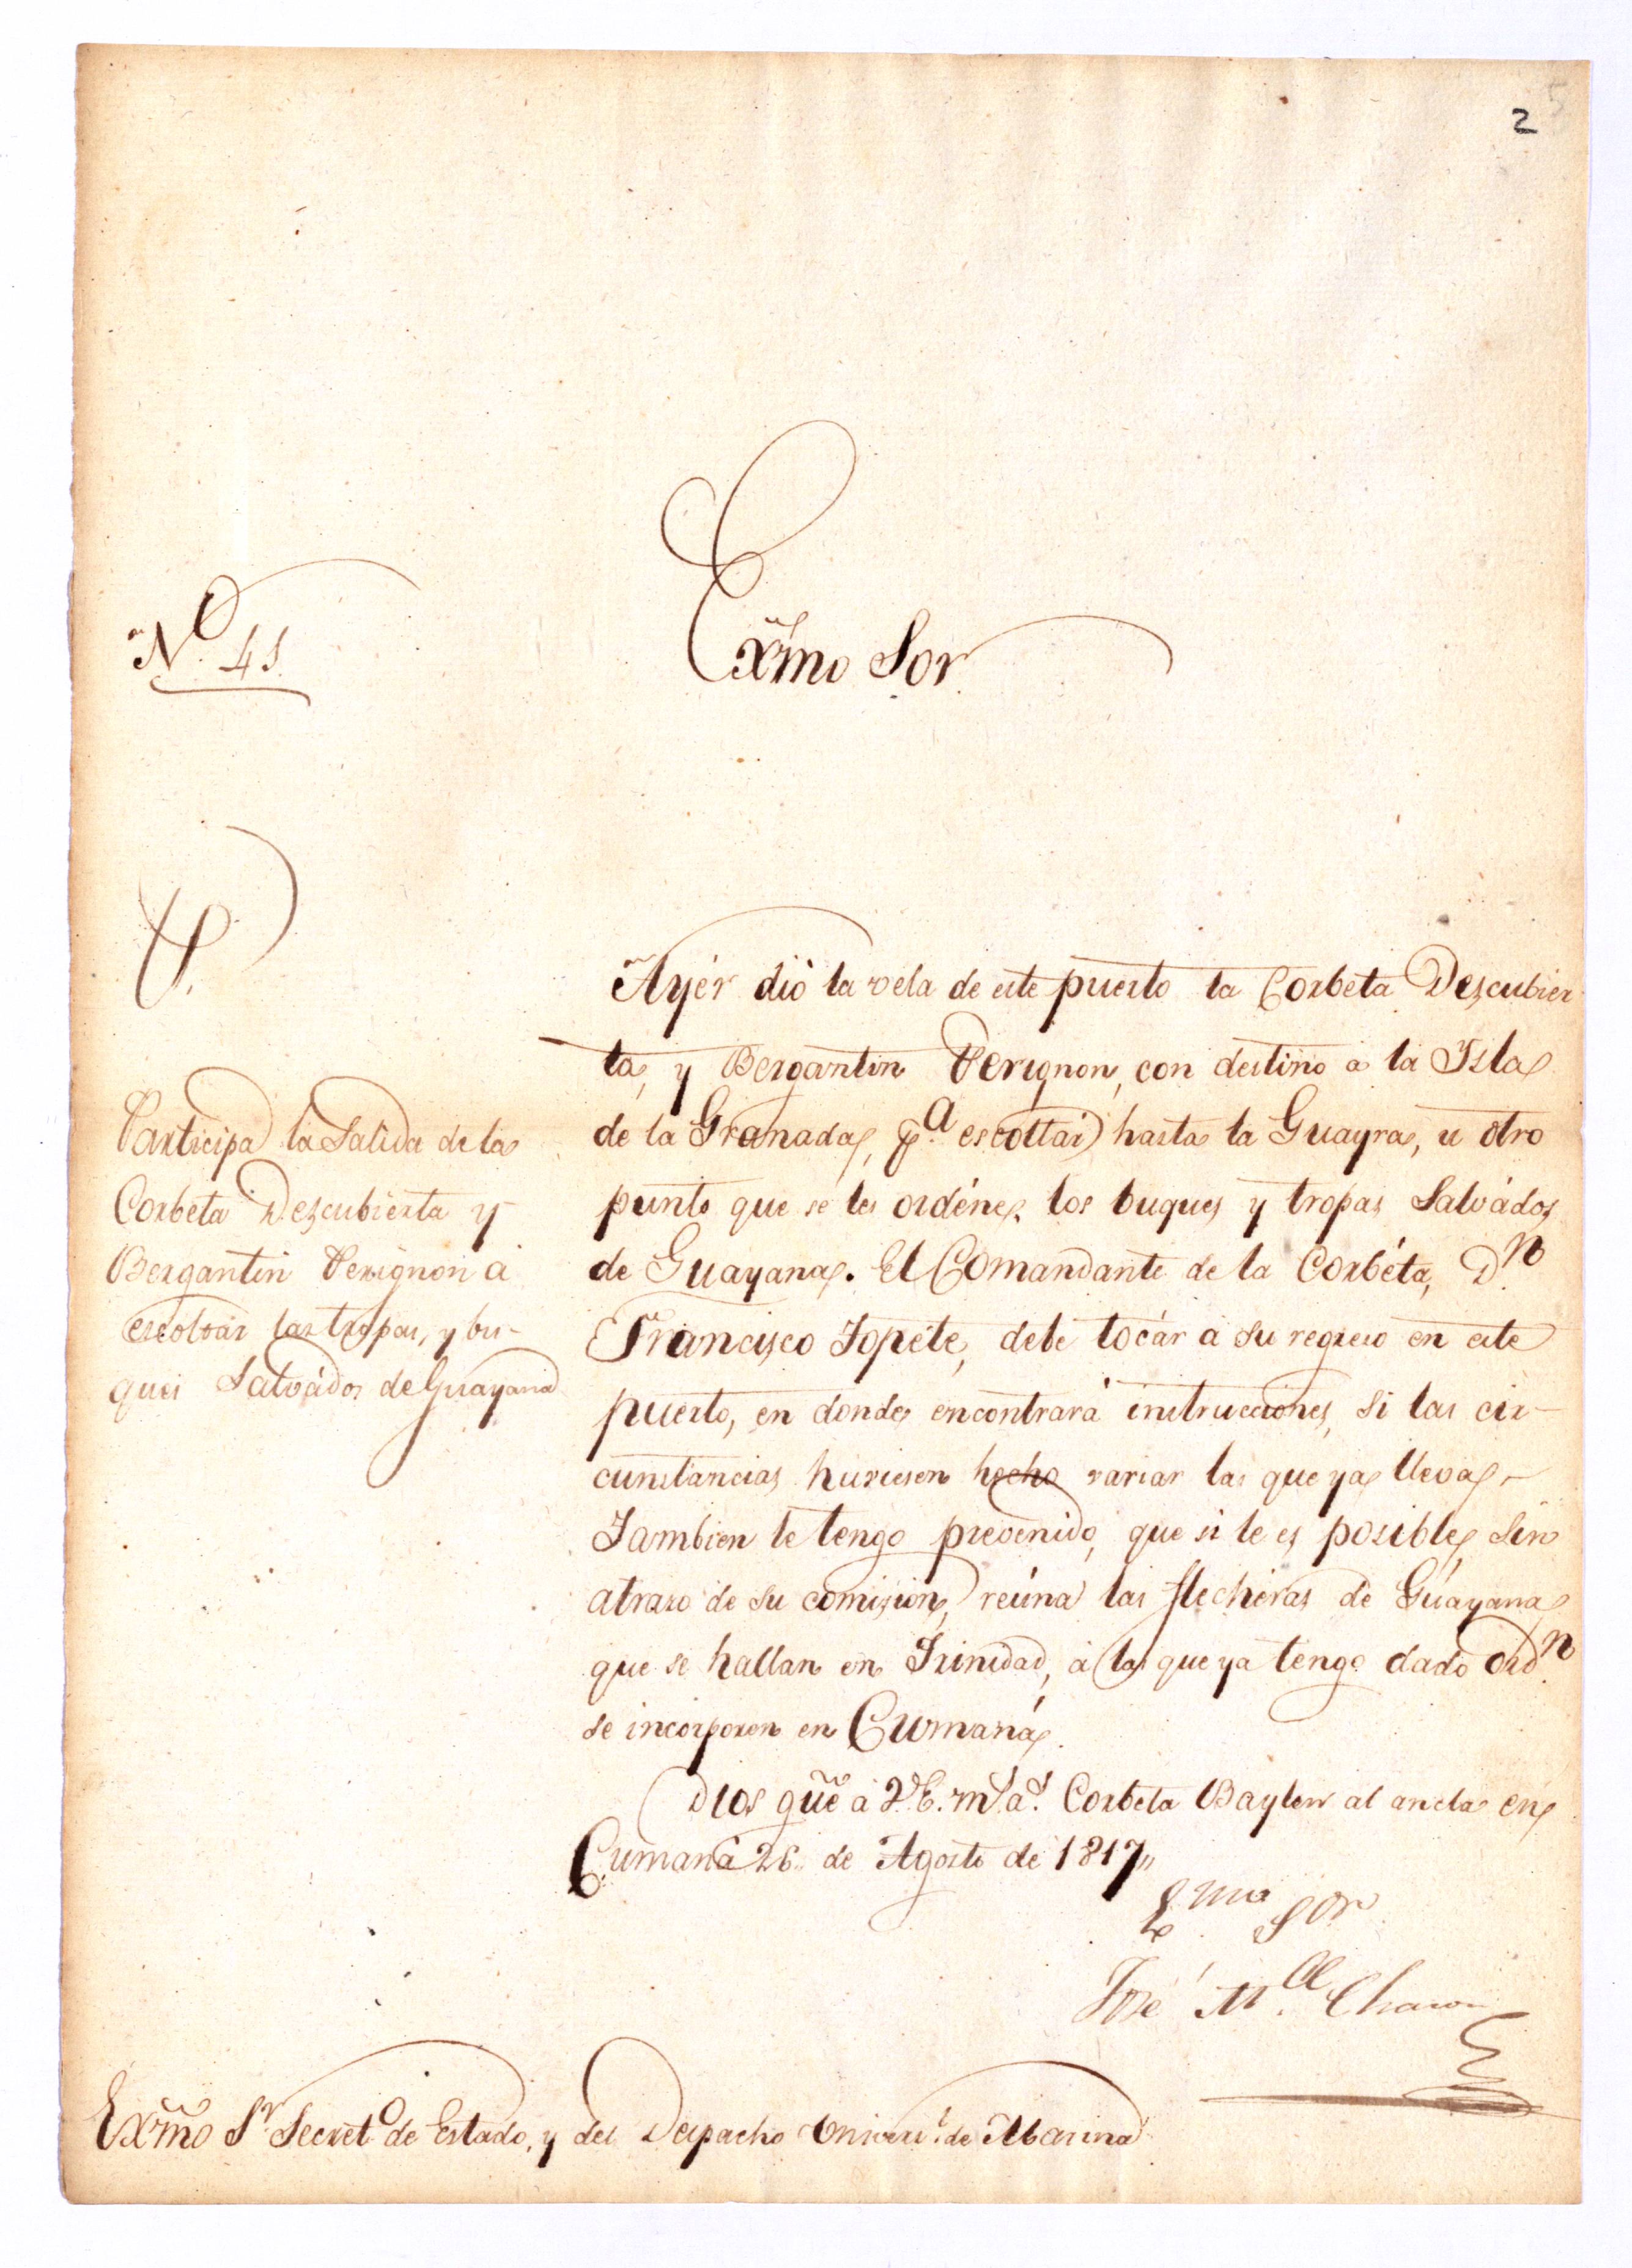 2
5
Nº 41
Exm̃o Sor
Ayér dió la vela de este puerto la Corbeta Descubier-
ta, y Bergantin Perignon, con destino a la Isla
de la Granada, pª. escoltar hasta la Guayra, u otro
punto que se les ordéne, los buques y tropas Salvádos
de Guayana. El Comandante de la Corbéta, Dn
Francisco Topete, debe tocár a su regreso en este
puerto, en donde encontrará instrucciones, si las cir-
cunstancias huviesen hecho variar las que ya lleva.
Tambien le tengo prevenido, que si le es posible, sin
atraso de su comision, reúna las flecheras de Guayana
que se hallan en Trinidad, à las que ya tengo dado ordn
se incorporen en Cumaná.
Participa la Salida de la
Corbeta Descubierta y
Bergantin Perignon à
escoltar las tropas, y bu-
ques Salvádos de Guayana
Dios güe à V.E. ms. as. Corbeta Baylen al ancla en
Cumaná 26 de Agosto de 1817,,
Exmo Sor
José Ml. Chacon
Exm̃o Sr Secretº de Estado, y del Despacho Univers.l de Marina